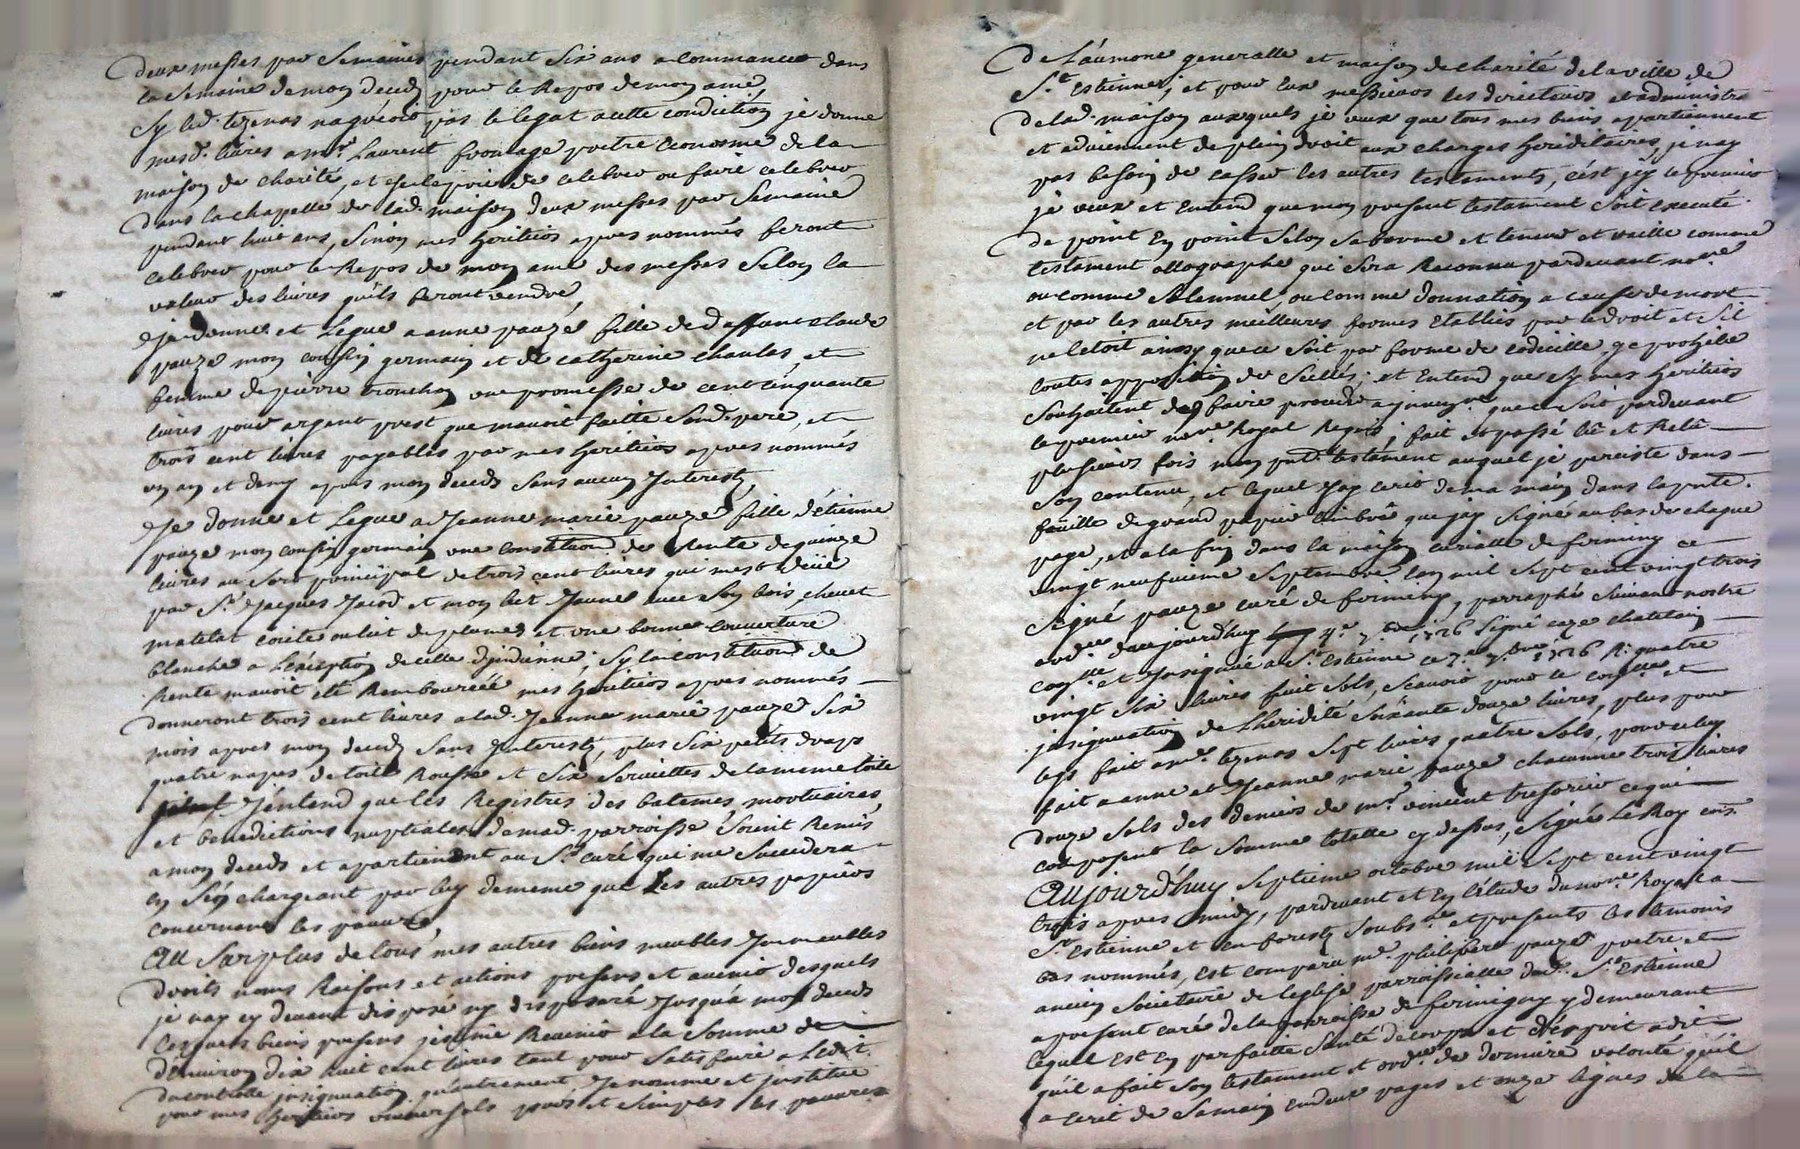 deux messes par semaines pendant six ans a commancer dans
la semaine de mon deceds pour le repos de mon ame
sy led. tezenas nagreoit pas le legat a cette condiction je donne
mesd. livres a mr. Laurent fromage pretre econosme de la
maison de charité, et de celebrer ou faire celebrer
dans la chapelle de lad. maison deux messes par semaine
pendant huit ans, sinon mes heritiers apres nommés feront
celebrer pour le repos de mon ame des messes selon la
valeur des livres quils feront vendre,
je donne et legue a anne pauze fille de deffunt claude
pauze mon cousin germain et de catherine chaulas, et
femme de pierre tronchon une promesse de cent cinquante
livres pour argent prest que mavoit faitte sond. pere, et
trois cent livres payables par mes heritiers apres nommés
un an et demy apres mon deceds sans aucun Interests,
Je donne et legue a Jeanne marie pauze fille d'étienne
pauze mon cousin germain une constitution de rente de quinze
livres au sort principal de trois cent livres qui mest deüe
par Sr. Jacques Jacod et mon lict Jaune avec son bois, chevet
matelat coite ou lit de plumes et une bonne couverture
blanche a l'exception de celle d'jndienne; sy la constitution de
rente mavoit eté rembourcée mes heritiers apres nommés
donneront trois cent livres a lad. Jeanne marie pauze six
mois apres mon deceds sans Interests, plus six petits draps
quatre napes de toile rousse et six serviettes de la meme toile
J'entend que les registres des batemes mortuaires
et benedictions nuptiales de mad. parroisse soient remis
a mon deceds et apartiendront au Sr. curé qui me succedera
en s'en chargeant par luy de meme que les autres papiers
concernant les pauvres,
Au surplus de tous mes autres biens meubles Immeubles
droits noms raisons et actions presens et avenir desquels
je nay cy devant disposé ny disposeré jusqu'a mon deceds
lesquels biens presens jestime revenir a la somme de
d'environ dix huit cent livres tant pour satisfaire a l'edit
du controlle jnsignuation quautrement, Je nomme et jnstitue
pour mes heritiers universels pour et simples les pauvres
de l'aumone generalle et maison de charité de la ville de
St. Estienne; et pour eux messieurs les directeurs et administra-
de lad. maison auxquels je veux que tous mes biens apartiennent
et adviennent de plein droit aux charges hereditaires, je nay
pas besoin de casser les autres testaments, c'est jcy le premier
je veux et entend que mon present testament soit executé
de point en point selon sa forme et teneur et vaille comme
testament ollographe qui sera reconnu pardevant nore
ou comme solemnel, ou comme donnation a cause de mort
et par les autres meilleures formes etablies par le droit et sil
ne letoit ainsy que ce soit par forme de codicille, je prohibe
toutes apposition de scellés; et entend que sy mes heritiers
souhaitent de faire proceder a jnventre que ce soit pardevant
le premier nore Royal requis; fait et passé lû et relû
plusieurs fois mon pnt. testament auquel je perciste dans
son contenu, et lequel Jay ecrit de ma main dans la pnte.
feuille de grand papier timbré que jay signé au bas de chaque
page, et a la fin dans la maison curialle de firminy ce
vingt neufvieme septembre lan mil sept cent vingt trois
signé pauze curé de firminy, parraphée suivant nostre
ordce. daujourdhuy 4e. 7bre 1726 signé caze chatelain
conlle. et jnsignué a St. Estienne ce 7e. 7bre 1726 R. quatre
vingt six livres huit sols, scavoir pour le conlle. et
jnsignuation de l'heridité soixante douze livres, plus pour
legs fait a mr. tezenas sept livres quatre sols, pour celuy
fait a anne et Jeanne marie pauze chacunne trois livres
douze sols des deniers de mr. vincent tresorier ce qui
composent la somme totalle cy dessus, signé LeRoy com.
Aujourdhuy septieme octobre mil sept cent vingt
trois apres midy, pardevant et en l'étude du nore. Royal a
St. Estienne et en forests soubsne. et presents les temoins
bas nommés, est comparu mre. philipes pauze pretre et
ancien societaire de leglise parroissialle dud. St. Estienne
a present curé de la parroisse de firminy y demeurant
lequel est en parfaitte santé de corps et d'esprit a dit
quil a fait son testament et ordre de derniere volonté quil
a ecrit de sa main en deux pages et onze lignes de la